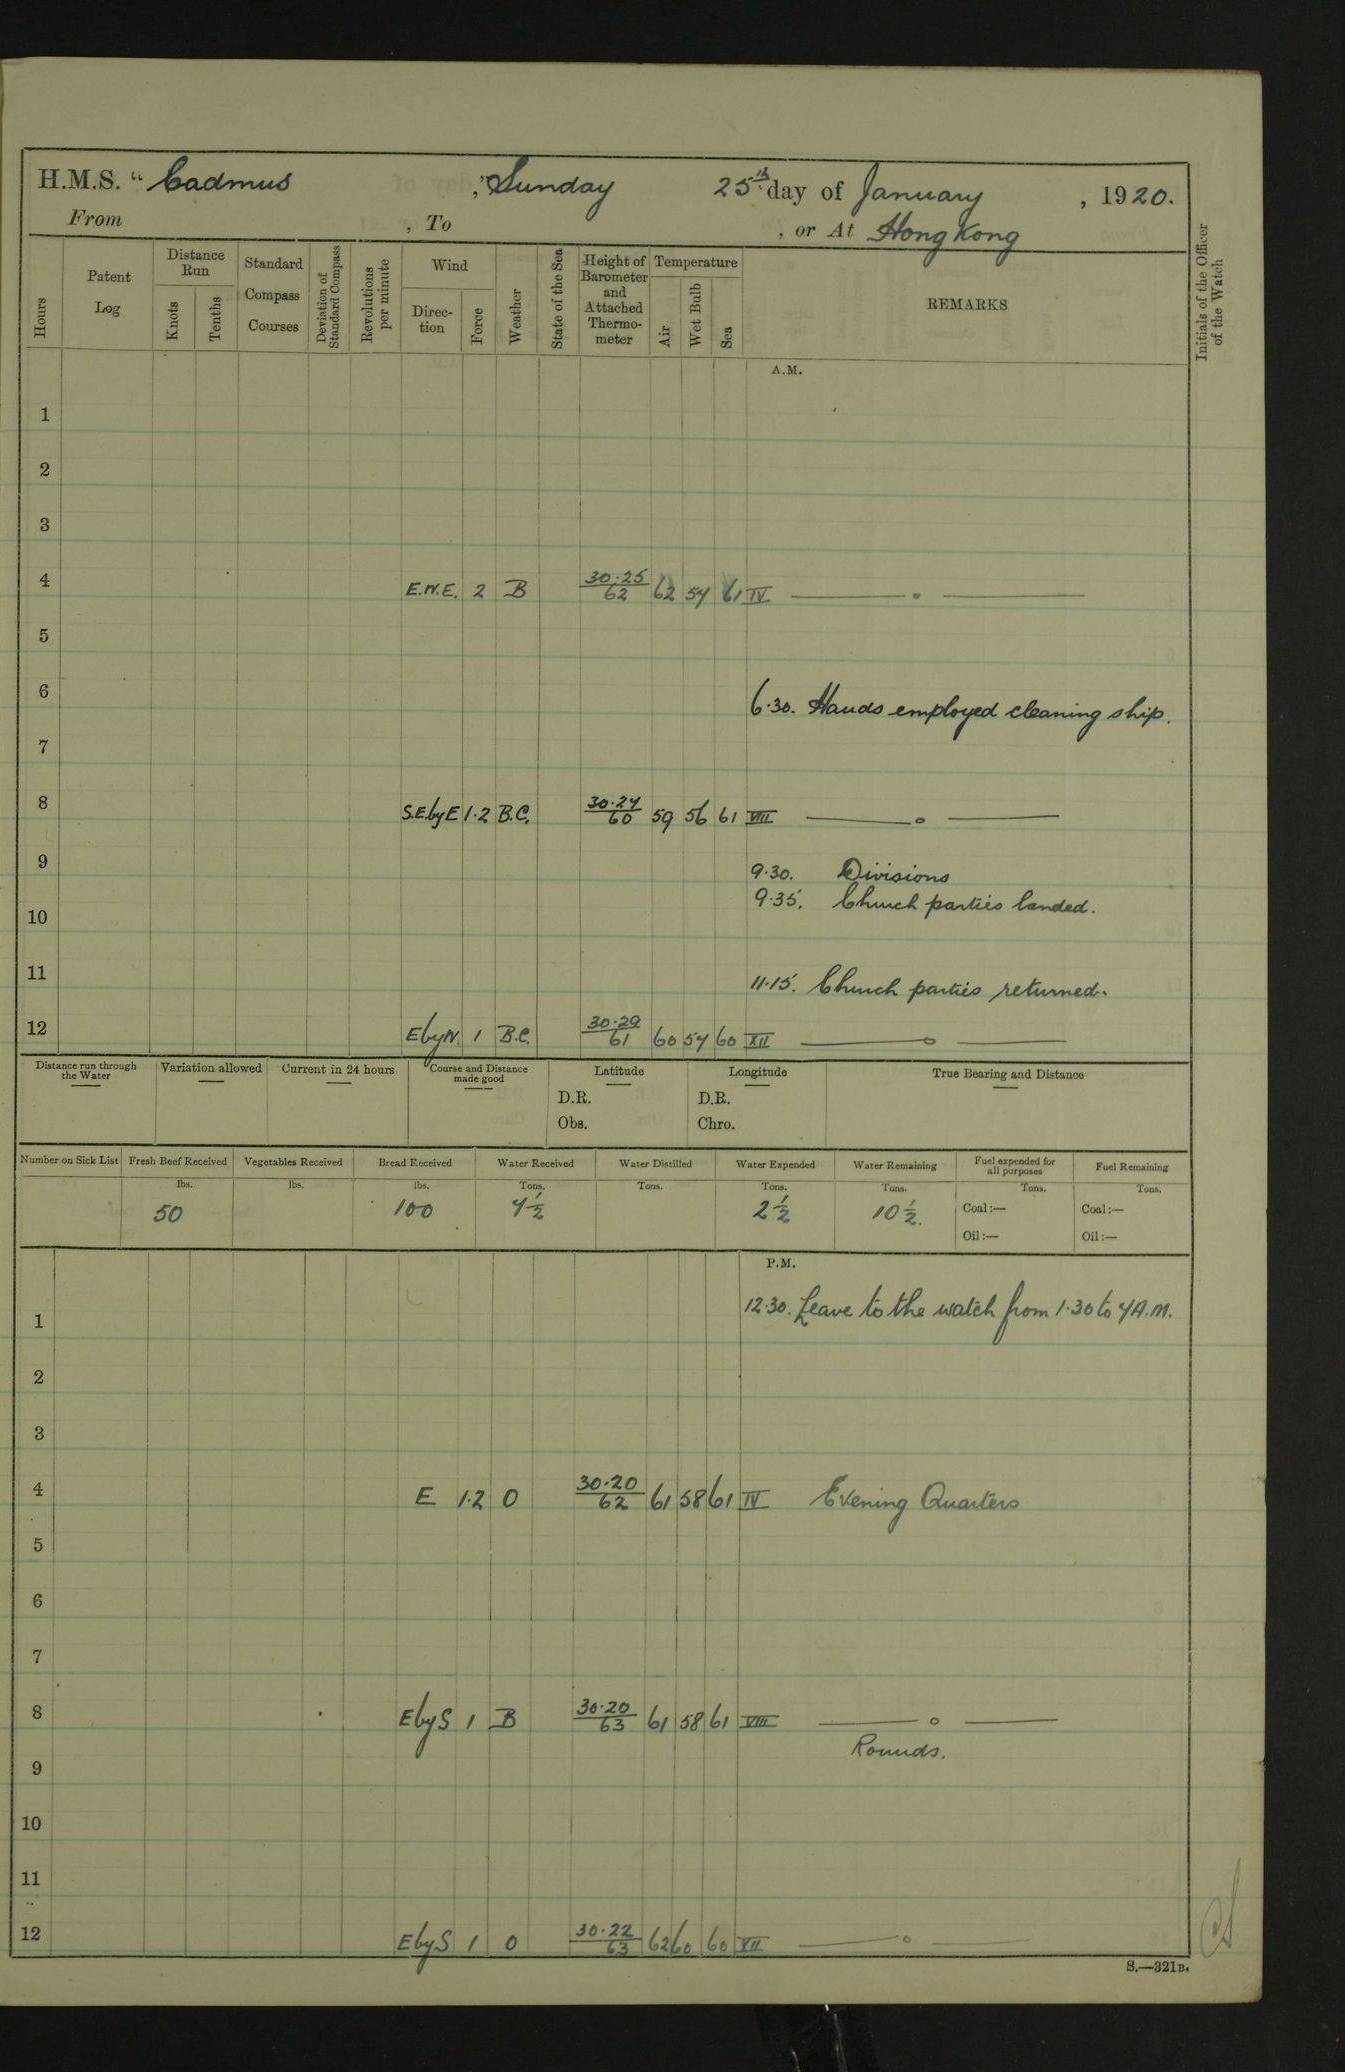 H.M.S. “ Cadmus ,” Sunday 25th day of January , 1920.
From , To , or At Hong Kong
Hours Patent Log Distance Run Knots Tenths Standard Compass Courses Deviation of Standard Compass Revolutions per minute Wind Direction Force Weather State of the Sea Height of Barometer and Attached Thermometer Temperature Air Wet Bulb Sea REMARKS Initials of the Officer of the Watch
A.M.
1
2
3
4 E.N.E. 2 B 30.25 62 62 54 61 IV
5
6
6.30. Hands employed cleaning ship.
7
8 S.E.byE 1.2 B.C. 30.24 60 59 56 61 VIII
9 9.30. Divisions
9.35. Church parties landed.
10
11 11.15. Church parties returned.
12 EbyN. 1 B.C. 30.29 61 60 54 60 XII
Distance run through the Water Variation allowed Current in 24 hours Course and Distance made good Latitude Longitude True Bearing and Distance
D.R. D.R.
Obs. Chro.
Number on Sick List Fresh Beef Received Vegetables Received Bread Received Water Received Water Distilled Water Expended Water Remaining Fuel expended for all purposes Fuel Remaining
lbs. lbs. lbs. Tons. Tons. Tons. Tons. Tons. Tons.
50 100 4½ 2½ 10½. Coal :— Coal :—
Oil :— Oil :—
P.M.
12.30. Leave to the watch from 1.30 to 7 A.M.
1
2
3
4 E 1.2 O 30.20 62 61 58 61 IV Evening Quarters
5
6
7
8 EbyS 1 B 30.20 63 61 58 61 VIII
Rounds.
9
10
11
12 EbyS 1 O 30.22 63 62 60 60 XII
S.—321B.